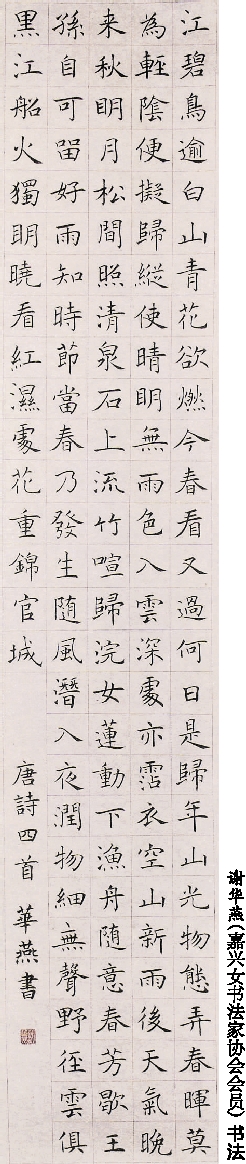 江碧鳥逾白山青花欲燃今春看又過何日是歸年山光物態弄春暉莫
為輕陰便擬歸縱使晴明無雨色入雲深處亦霑衣空山新雨後天氣晚
来秋明月松間照清泉石上流竹喧歸浣女蓮動下漁舟随意春芳歇王
孫自可留好雨知時節當春乃發生随風潛入夜潤物細無聲野径雲俱
黑江船火獨明曉看紅濕處花重錦官城 唐詩四首 華燕書
谢华燕(嘉兴女书法家协会会员) 书法